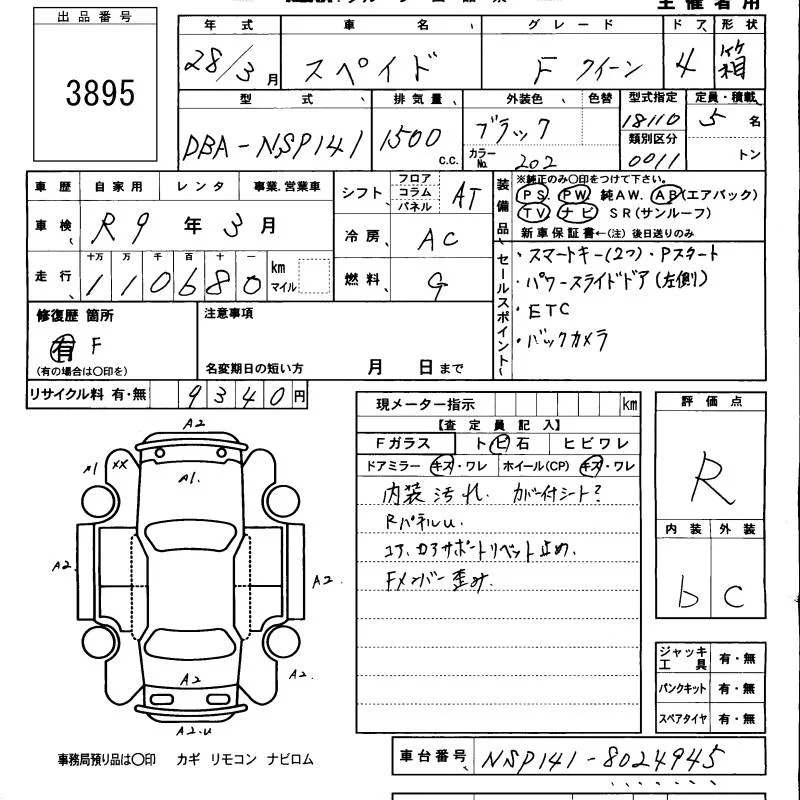 主催者用
出品番号
3895
年式 車名 グレード ドア 形状
28/3月 スペイド F クイーン 4 箱
型式 排気量 外装色 色替 型式指定 定員・積載
DBA-NSP141 1500 C.C. ブラック 18110 5 名
カラーNo. 202 類別区分 0011 トン
車歴 自家用 レンタ 事業.営業車
車検 R9年3月
走行 十万 万 千 百 十 一
110680 km マイル
シフト フロア コラム パネル AT
冷房 AC
燃料 G
装備品
※純正のみ〇印をつけて下さい。
PS. PW 純AW. AB(エアバック)
TV ナビ SR(サンルーフ)
新車保証書←(注)後日送りのみ
セールスポイント
・スマートキー(2つ)・Pスタート
・パワースライドドア(左側)
・ETC
・バックカメラ
修復歴 箇所
有 F
(有の場合は〇印を)
注意事項
名変期日の短い方 月 日まで
リサイクル料 有・無 9340円
現メーター指示 km
【査定員記入】
Fガラス トビ石 ヒビワレ
ドアミラー キズ・ワレ ホイール(CP) キズ・ワレ
内装汚れ. カバー付シート?
RパネルU.
コア、カアサポートリベット止め.
Fメンバー歪み.
評価点
R
内装 外装
b C
ジャッキ工具 有・無
パンクキット 有・無
スペアタイヤ 有・無
A2
A1 XX
A1.
A2
A2.
A2
A2.
A2.U
事務局預り品は〇印 カギ リモコン ナビロム
車台番号 NSP141-8024945